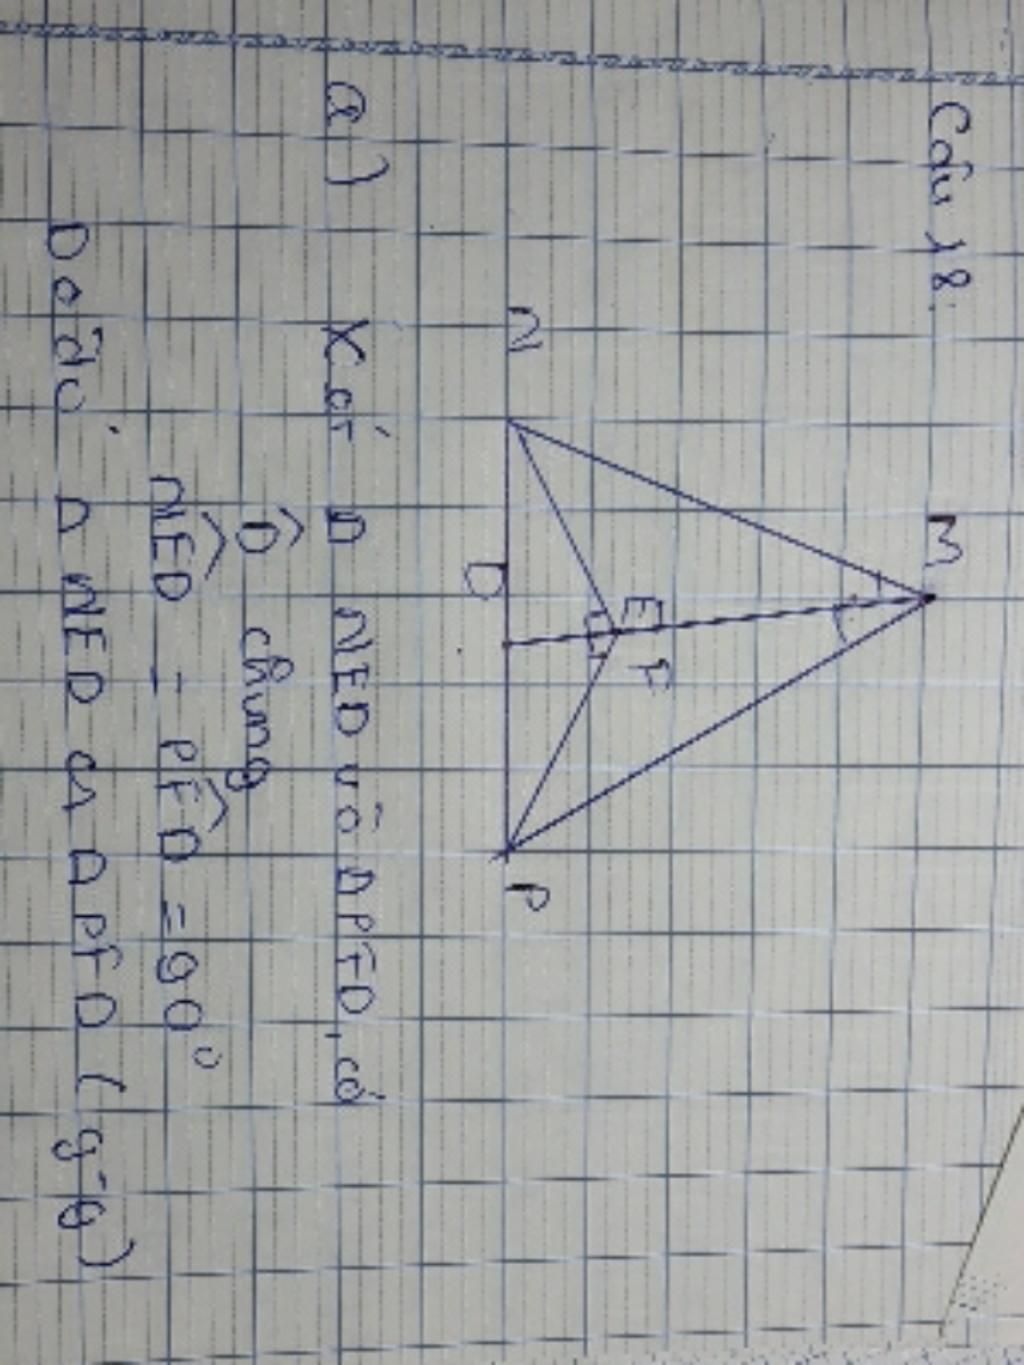 Câu 18.
M
E F
N D P
a) Xét Δ NED và Δ PFD, có
D̂ chung
NÊD = PF̂D = 90°
Do đó: Δ NED ∽ Δ PFD (g-g)